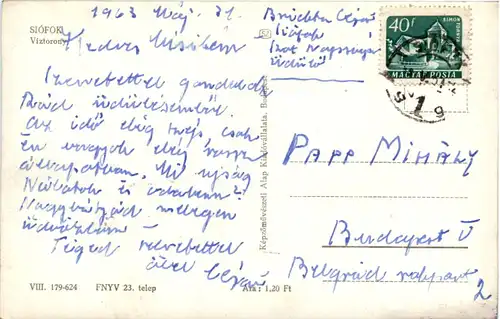 SIÓFOK
Víztorony
1963 Máj. 31.
Kedves Misikém
Szeretettel gondolok
Rád üdülésemből.
Az idő elég szép, csak
én vagyok elég rossz
állapotban. Mi ujság
Nálatok és odabenn?
Nagybátyád melegen
üdvözlöm!
Téged szeretettel
ölel Géza
Siófok
Szot Nagy
üdülő
40f
SIMON
MAGYAR POSTA
PAPP MIHÁLY
Budapest V
Belgrád rakpart
2
Képzőművészeti Alap Kiadóvállalata, Budapest
VIII. 179-624 FNYV 23. telep Ára: 1,20 Ft